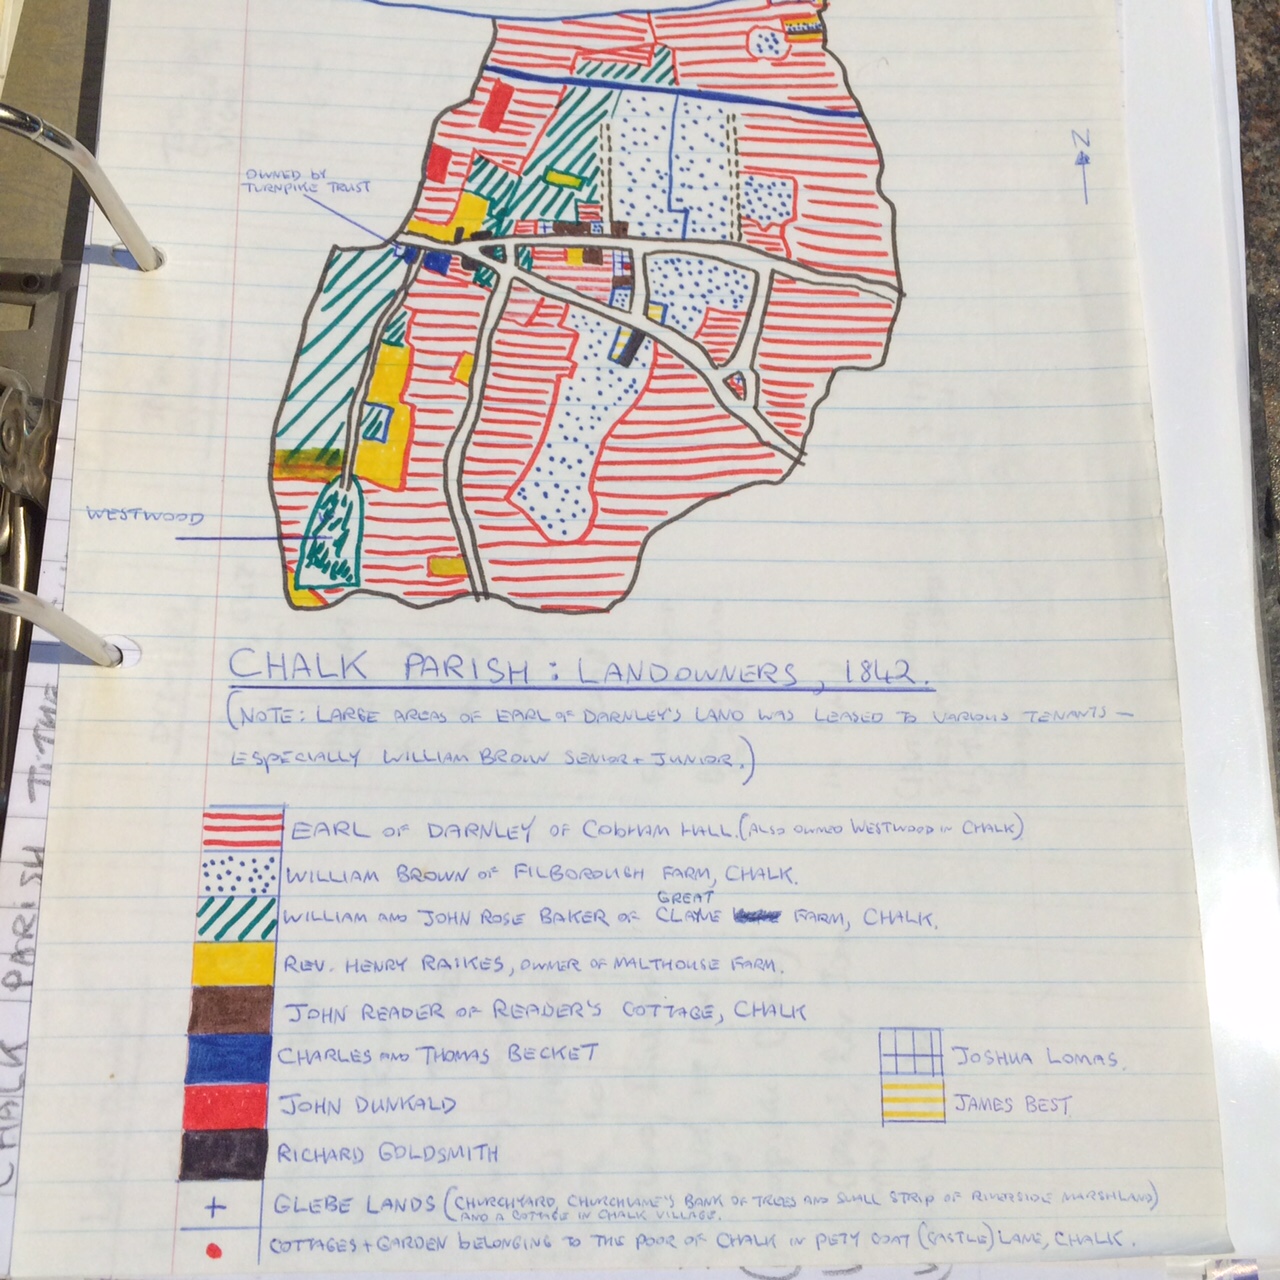 OWNED BY
TURNPIKE TRUST
N
WESTWOOD
CHALK PARISH : LANDOWNERS, 1842.
(NOTE: LARGE AREAS OF EARL OF DARNLEY'S LAND WAS LEASED TO VARIOUS TENANTS –
ESPECIALLY WILLIAM BROWN SENIOR + JUNIOR.)
EARL OF DARNLEY OF COBHAM HALL. (ALSO OWNED WESTWOOD IN CHALK)
WILLIAM BROWN OF FILBOROUGH FARM, CHALK.
GREAT
WILLIAM AND JOHN ROSE BAKER OF CLAYNE FARM, CHALK.
REV. HENRY RAIKES, OWNER OF MALTHOUSE FARM.
JOHN READER OF READER'S COTTAGE, CHALK
CHARLES AND THOMAS BECKET
JOSHUA LOMAS.
JOHN DUNKALD
JAMES BEST
RICHARD GOLDSMITH
+ GLEBE LANDS (CHURCHYARD, CHURCHLANE'S BANK OF TREES AND SMALL STRIP OF RIVERSIDE MARSHLAND)
AND A COTTAGE IN CHALK VILLAGE.
COTTAGES + GARDEN BELONGING TO THE POOR OF CHALK IN PETY COAT (CASTLE) LANE, CHALK.
CHALK PARISH TITHE